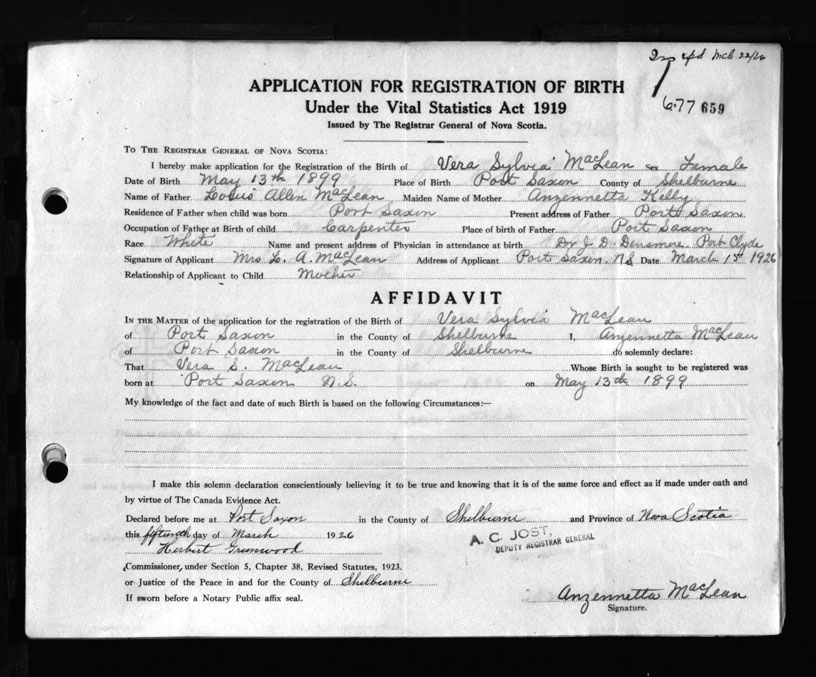 rpd Mch 22/26
677 659
APPLICATION FOR REGISTRATION OF BIRTH
Under the Vital Statistics Act 1919
Issued by The Registrar General of Nova Scotia.
To The Registrar General of Nova Scotia:
I hereby make application for the Registration of the Birth of Vera Sylvia MacLean Sex Female
Date of Birth May 13th 1899 Place of Birth Port Saxon County of Shelburne
Name of Father Allen MacLean Maiden Name of Mother Anzennetta Kelly
Residence of Father when child was born Port Saxon Present address of Father Port Saxon
Occupation of Father at Birth of child Carpenter Place of birth of Father Port Saxon
Race White Name and present address of Physician in attendance at birth Dr J. D. Densmore. Port Clyde
Signature of Applicant Mrs L. A. MacLean Address of Applicant Port Saxon. N.S Date March 15 1926
Relationship of Applicant to Child Mother
AFFIDAVIT
In the Matter of the application for the registration of the Birth of Vera Sylvia MacLean
of Port Saxon in the County of Shelburne I, Anzennetta MacLean
of Port Saxon in the County of Shelburne do solemnly declare:
That Vera S. MacLean Whose Birth is sought to be registered was
born at Port Saxon N.S. on May 13th 1899
My knowledge of the fact and date of such Birth is based on the following Circumstances:—
I make this solemn declaration conscientiously believing it to be true and knowing that it is of the same force and effect as if made under oath and
by virtue of The Canada Evidence Act.
Declared before me at Port Saxon in the County of Shelburne and Province of Nova Scotia
this fifteenth day of March 1926
A. C. JOST,
DEPUTY REGISTRAR GENERAL
Herbert Greenwood
Commissioner, under Section 5, Chapter 38, Revised Statutes, 1923.
or Justice of the Peace in and for the County of Shelburne
If sworn before a Notary Public affix seal.
Anzennetta MacLean
Signature.